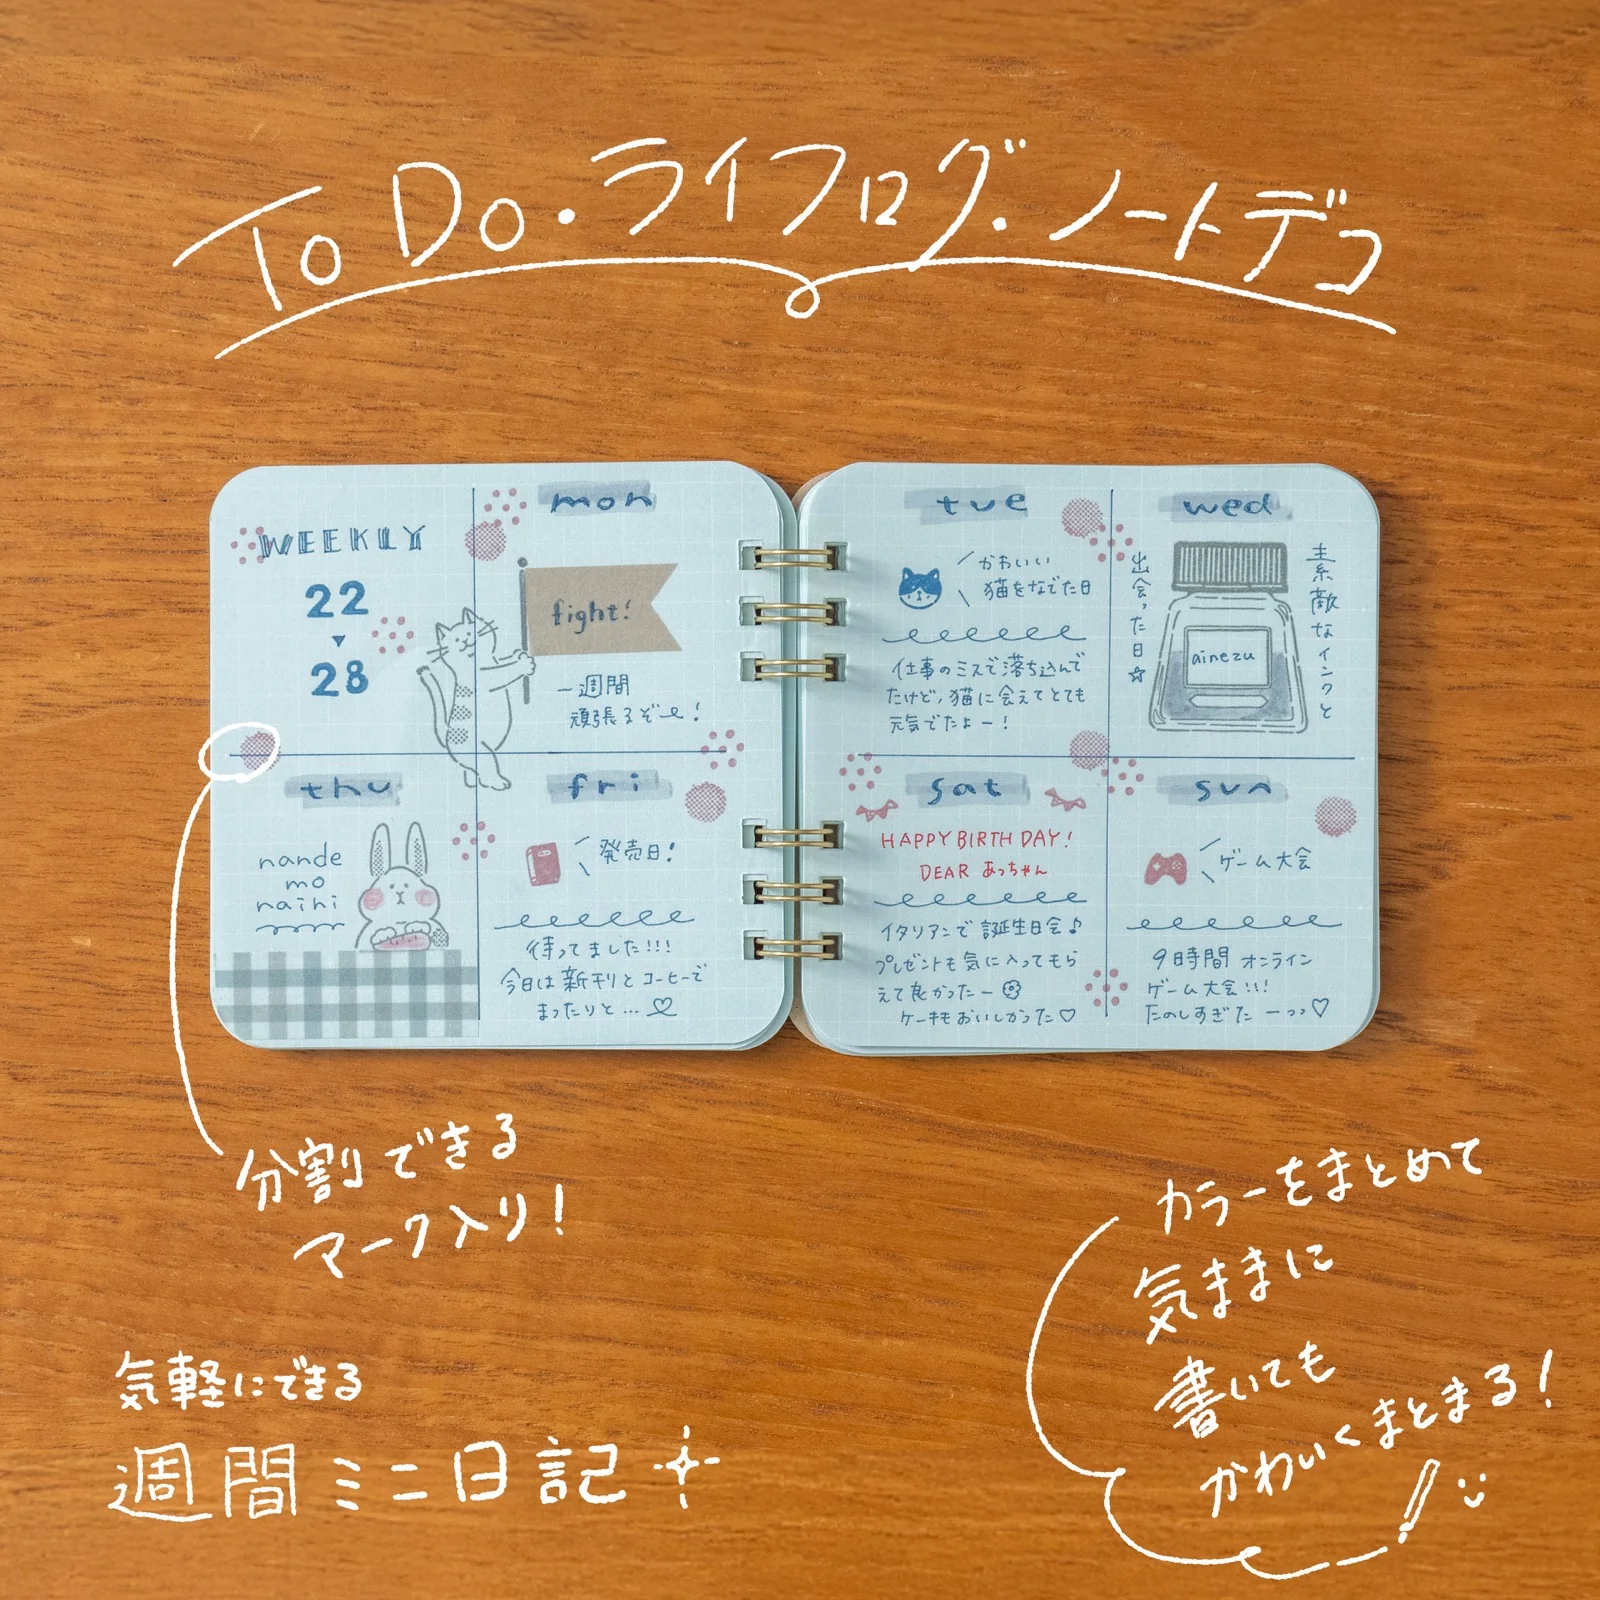 To Do・ライフログ・ノートデコ
WEEKLY
22
28
mon
fight!
一週間
頑張るぞー!
tue
かわいい
猫をなでた日
仕事のミスで落ち込んで
たけど、猫に会えてとても
元気でたよー!
wed
素敵なインクと
出会った日☆
ainezu
thu
nande
mo
naihi
fri
発売日!
待ってました!!!
今日は新刊とコーヒーで
まったりと…♡
sat
HAPPY BIRTH DAY!
DEAR あっちゃん
イタリアンで誕生日会♪
プレゼントも気に入ってもら
えて良かったー
ケーキもおいしかった♡
sun
ゲーム大会
9時間オンライン
ゲーム大会!!!
たのしすぎたーっっ♡
分割できる
マーク入り!
気軽にできる
週間ミニ日記
カラーをまとめて
気ままに
書いても
かわいくまとまる!